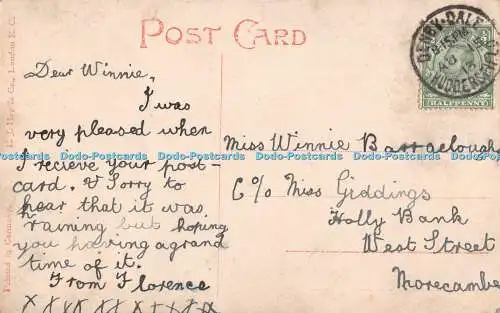 POST CARD
DENBY-DALE
HUDDERSFIELD
HALFPENNY
Dear Winnie,
I was
very pleased when
I recieve your post-
card. & Sorry to
hear that it was
raining but hoping
you having a grand
time of it.
From Florence
x x x x x x x x x x x
Miss Winnie Barraclough
C/o Miss Giddings
Holly Bank
West Street
Morecambe
Printed in Germany.
Co., London E.C.
Dodo-Postcards Dodo-Postcards Dodo-Postcards Dodo-Postcards Dodo-Postcards